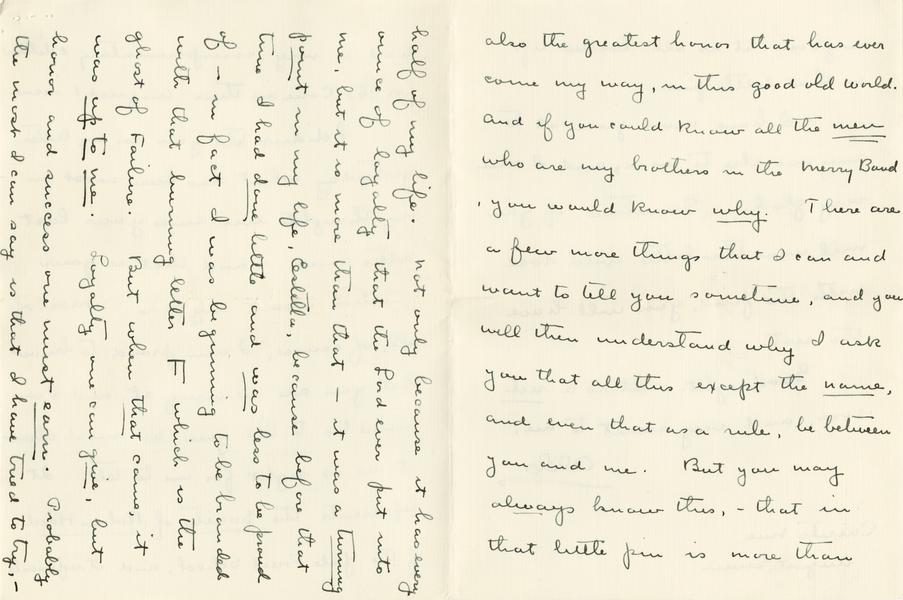 also the greatest honor that has ever
come my way, in this good old world.
And if you could know all the men
who are my brothers in the Merry Band
, you would know why. There are
a few more things that I can and
want to tell you sometime, and you
will then understand why I ask
you that all this except the name,
and even that as a rule, be between
you and me. But you may
always know this, - that in
that little pin is more than
half of my life. not only because it has every
ounce of loyalty that the Lord ever put into
me, but it is more than that – it was a turning
point in my life, Estella, because before that
time I had done little and was less to be proud
of – in fact I was beginning to be branded
with that burning letter F which is the
ghost of Failure. But when that came, it
was up to me. Loyalty one can give, but
honor and success one must earn. Probably
the most I can say is that I have tried to try, –